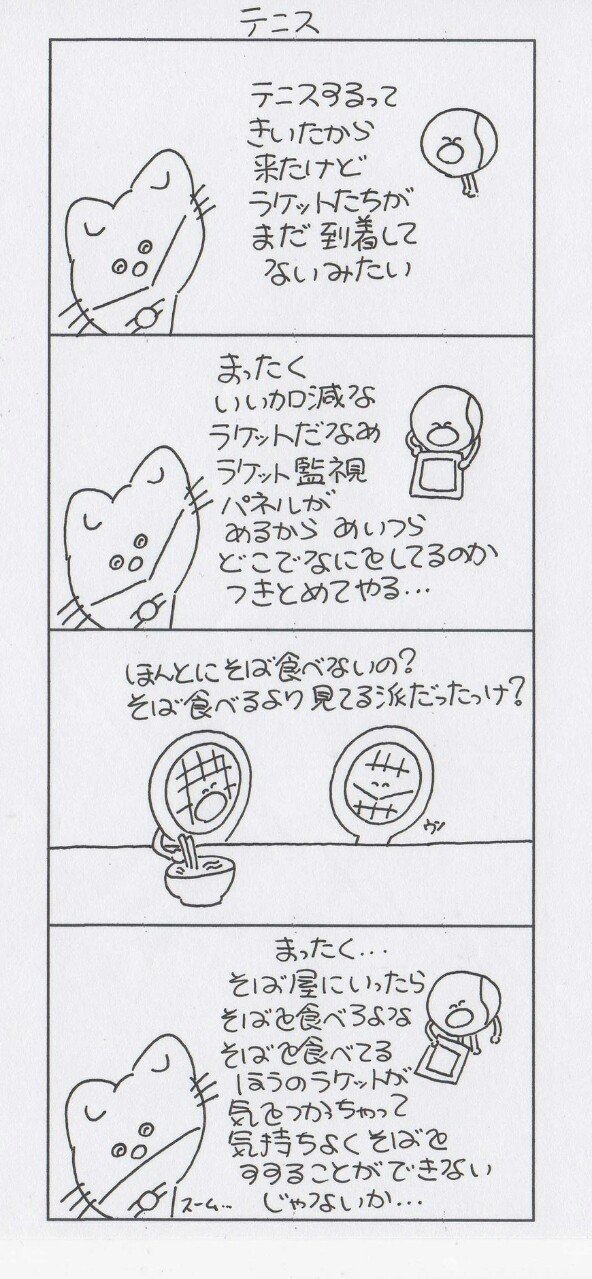 テニス
テニスするって
きいたから
来たけど
ラケットたちが
まだ到着して
ないみたい
まったく
いいカロ減な
ラケットだなぁ
ラケット監視
パネルが
あるから あいつら
どこでなにをしてるのか
つきとめてやる…
ほんとにそば食べないの?
そば食べるより見てる派だったっけ?
ウン
まったく…
そば屋にいったら
そばを食べろよな
そばを食べてる
ほうのラケットが
気をつかちゃって
気持ちよくそばを
すすることができない
じゃないか…
スーム…